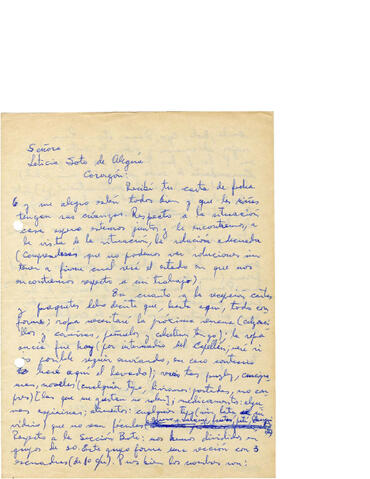 Señora
Leticia Soto de Alegría
Corazón:
Recibí tu carta de fecha
6 y me alegro estén todos bien y que les
tengan sus crianzas. Respecto a la situación
casa espero estemos juntos y le encontremos, a
la vista de la situación, la solución adecuada
(Comprenderás que no podemos ver soluciones sin
tener a firme cual será el estado en que nos
encontremos respecto a un trabajo).
En cuanto a la recepción cartas
y paquetes debo decirte que, hasta aquí, todo con-
forme; ropa necesitaré la próxima semana (calzon-
cillos y camisas, pañuelos y calcetines tengo); la ropa
sucia fue hoy (por intermedio del Capellán; veré si
es posible seguir enviando, en caso contrario
haré aquí el lavado);
novelas (cualquier tipo, livianas; postales, no
) (las que me gustan no); medicamentos: algu-
nas aspirinas; alimentos: cualquier tipo (sin
vidrio) que no sean
Respecto a la Sección Bote: nos hemos dividido en
grupos de 20. Este grupo forma una sección con 3
escuadras (de 10 c/u). Pues bien los nombres son: